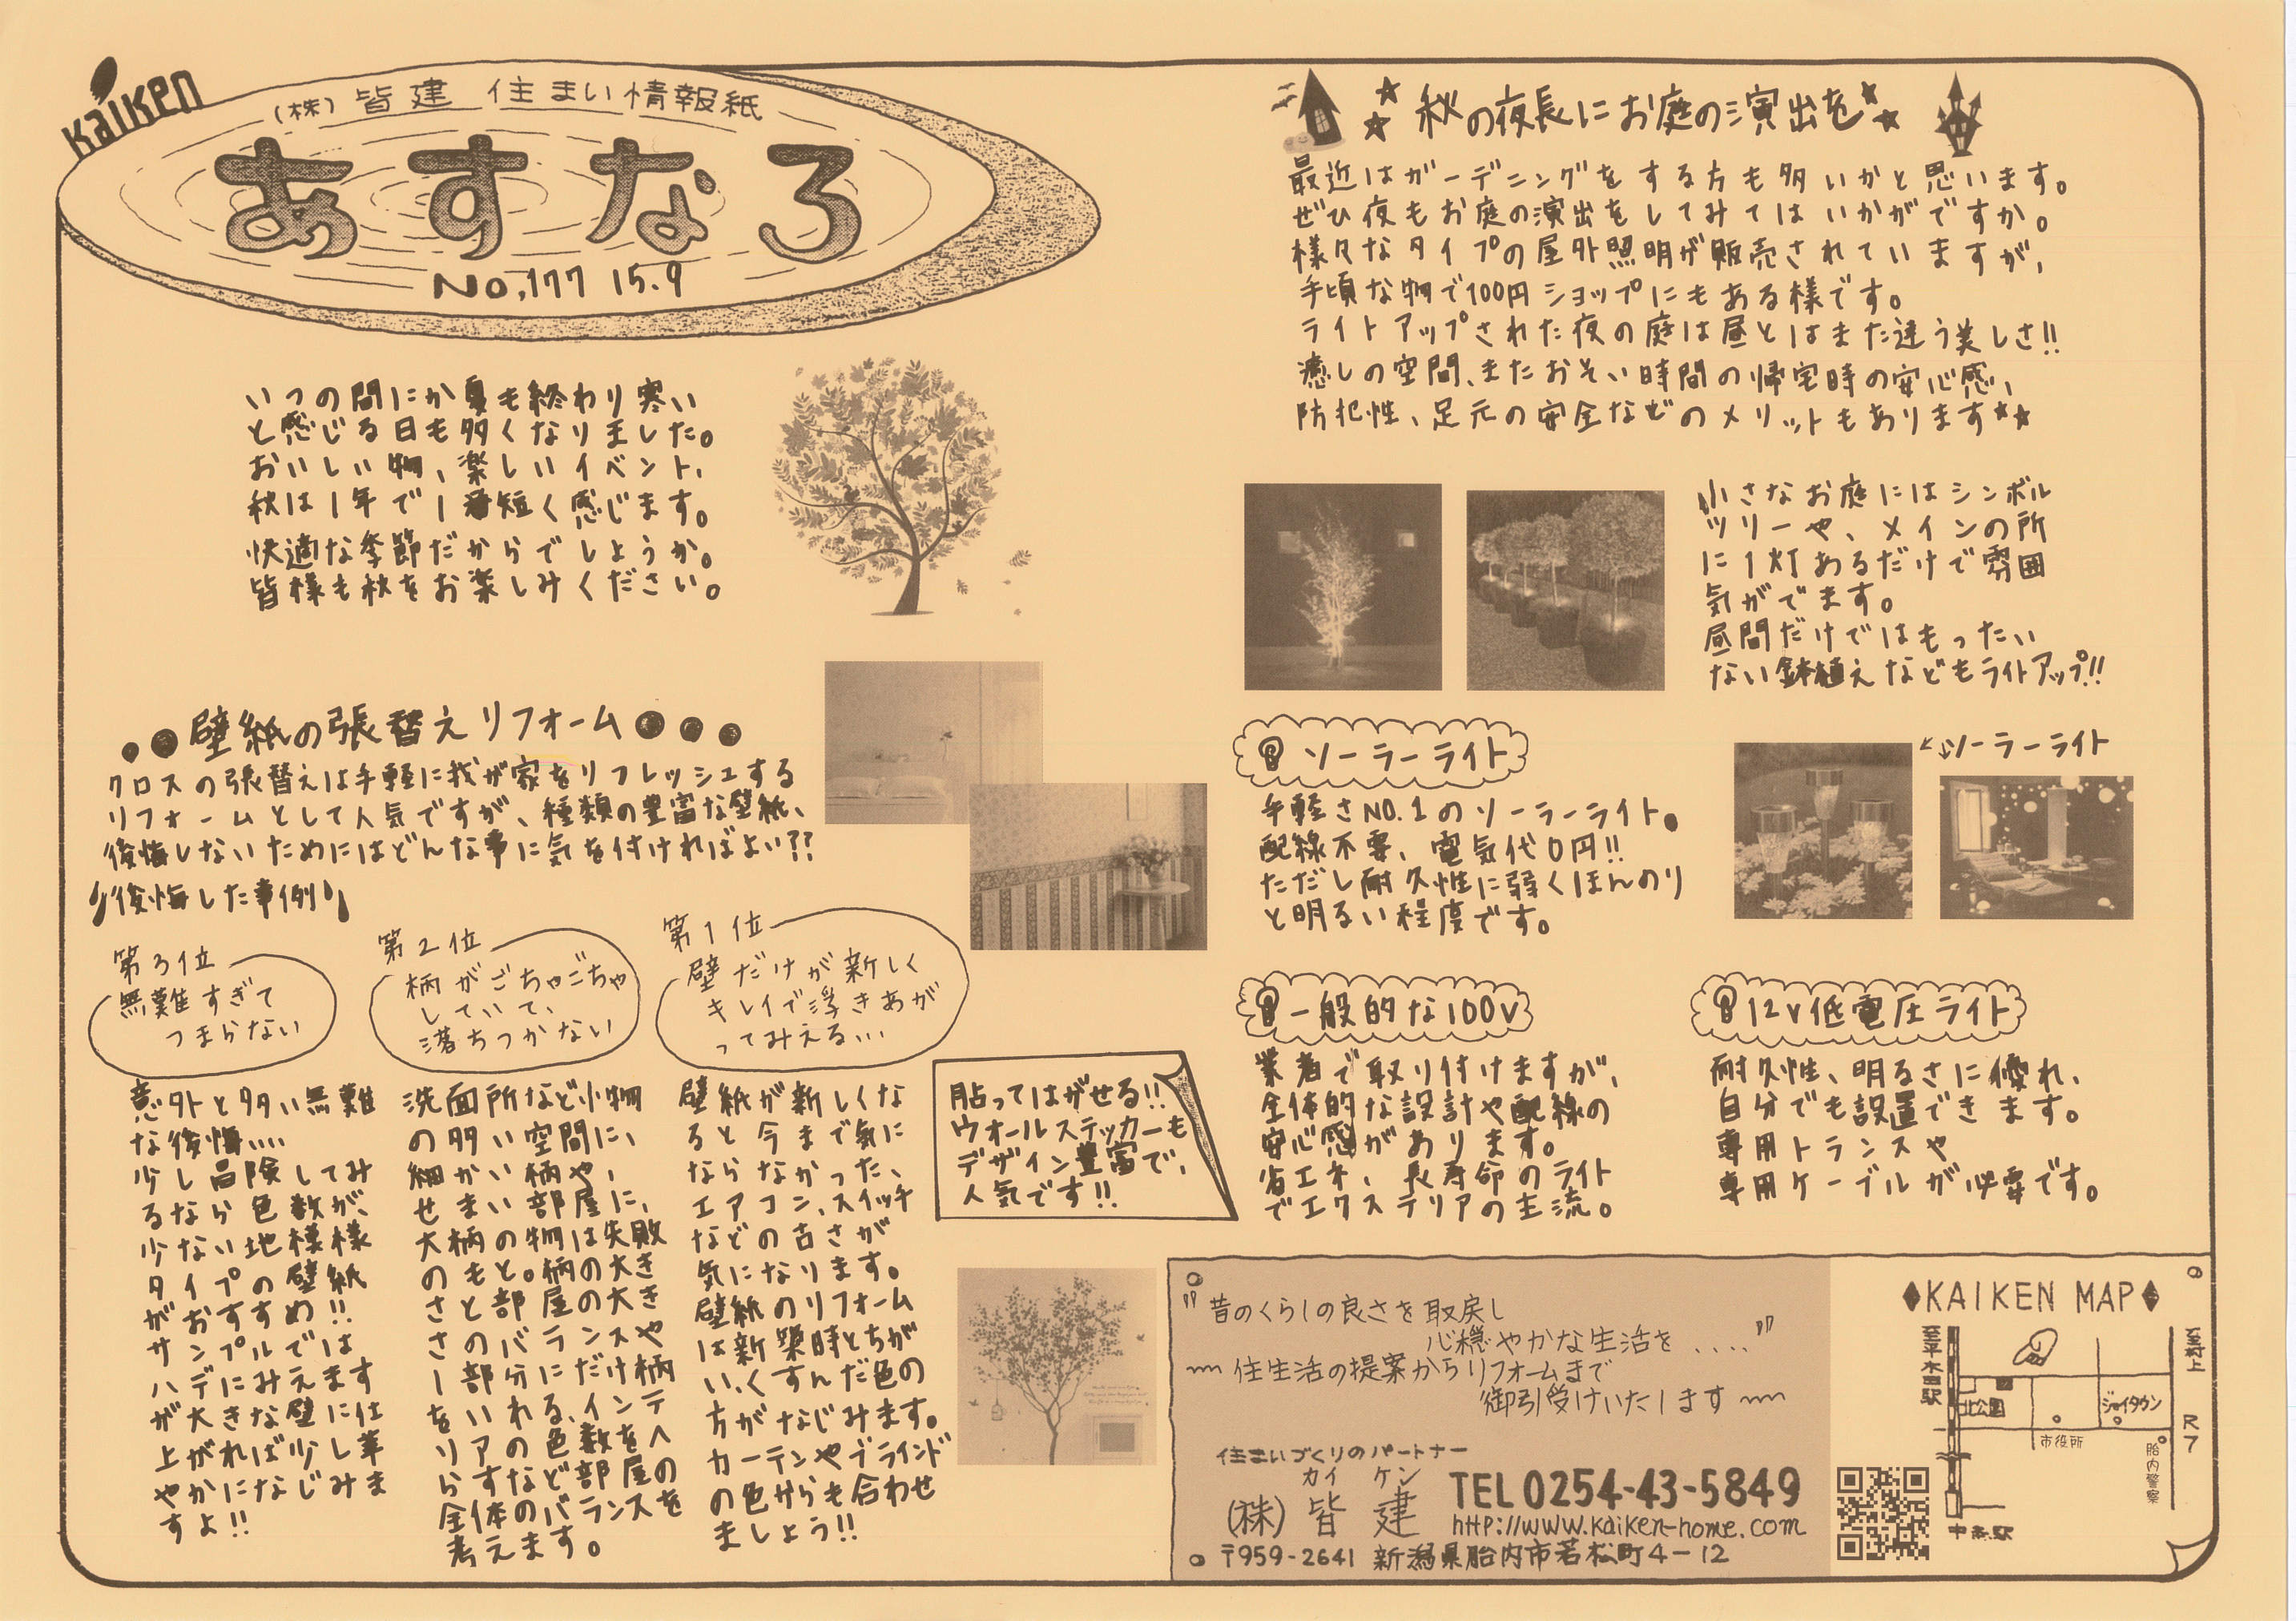 Kaiken
(株)皆建 住まい情報紙
あすなろ
No,177 15.9
いつの間にか夏も終わり寒い
と感じる日も多くなりました。
おいしい物、楽しいイベント、
秋は1年で1番短く感じます。
快適な季節だからでしょうか。
皆様も秋をお楽しみください。
壁紙の張替えリフォーム
クロスの張替えは手軽に我が家をリフレッシュする
リフォームとして人気ですが、種類の豊富な壁紙、
後悔しないためにはどんな事に気を付ければよい??
後悔した事例
第3位
無難すぎて
つまらない
意外と多い無難
な後悔…
少し冒険してみ
るなら色数が、
少ない地模様
タイプの壁紙
がおすすめ!!
サンプルでは
ハデにみえます
が大きな壁に仕
上がれば少し華
やかになじみま
すよ!!
第2位
柄がごちゃごちゃ
していて、
落ちつかない
洗面所など小物
の多い空間に、
細かい柄や、
せまい部屋に、
大柄の物は失敗
のもと。柄の大き
さと部屋の大き
さのバランスや
ー部分にだけ柄
をいれる、インテ
リアの色数をへ
らすなど部屋の
全体のバランスを
考えます。
第1位
壁だけが新しく
キレイで浮きあが
ってみえる…
壁紙が新しくな
ると今まで気に
ならなかった、
エアコン、スイッチ
などの古さが
気になります。
壁紙のリフォーム
は新築時とちが
い、くすんだ色の
方がなじみます。
カーテンやブラインド
の色からも合わせ
ましょう!!
貼ってはがせる!!
ウォールステッカーも
デザイン豊富で、
人気です!!
秋の夜長にお庭の演出を
最近はガーデニングをする方も多いかと思います。
ぜひ夜もお庭の演出をしてみてはいかがですか。
様々なタイプの屋外照明が販売されていますが、
手頃な物で100円ショップにもある様です。
ライトアップされた夜の庭は昼とはまた違う美しさ!!
癒しの空間、またおそい時間の帰宅時の安心感、
防犯性、足元の安全などのメリットもあります
小さなお庭にはシンボル
ツリーや、メインの所
に1灯あるだけで雰囲
気がでます。
昼間だけではもったい
ない鉢植えなどもライトアップ!!
ソーラーライト
手軽さNO.1のソーラーライト。
配線不要、電気代0円!!
ただし耐久性に弱くほんのり
と明るい程度です。
ソーラーライト
一般的な100V
業者で取り付けますが、
全体的な設計や配線の
安心感があります。
省エネ、長寿命のライト
でエクステリアの主流。
12V低電圧ライト
耐久性、明るさに優れ、
自分でも設置できます。
専用トランスや
専用ケーブルが必要です。
昔のくらしの良さを取戻し
心穏やかな生活を ....
住生活の提案からリフォームまで
御引受けいたします
住まいづくりのパートナー
カイ ケン
(株)皆建 TEL 0254-43-5849
http://www.kaiken-home.com
〒959-2641 新潟県胎内市若松町4-12
KAIKEN MAP
至平木田駅
至村上
北公園
ジョイタウン
市役所
R7
胎内警察
中条駅